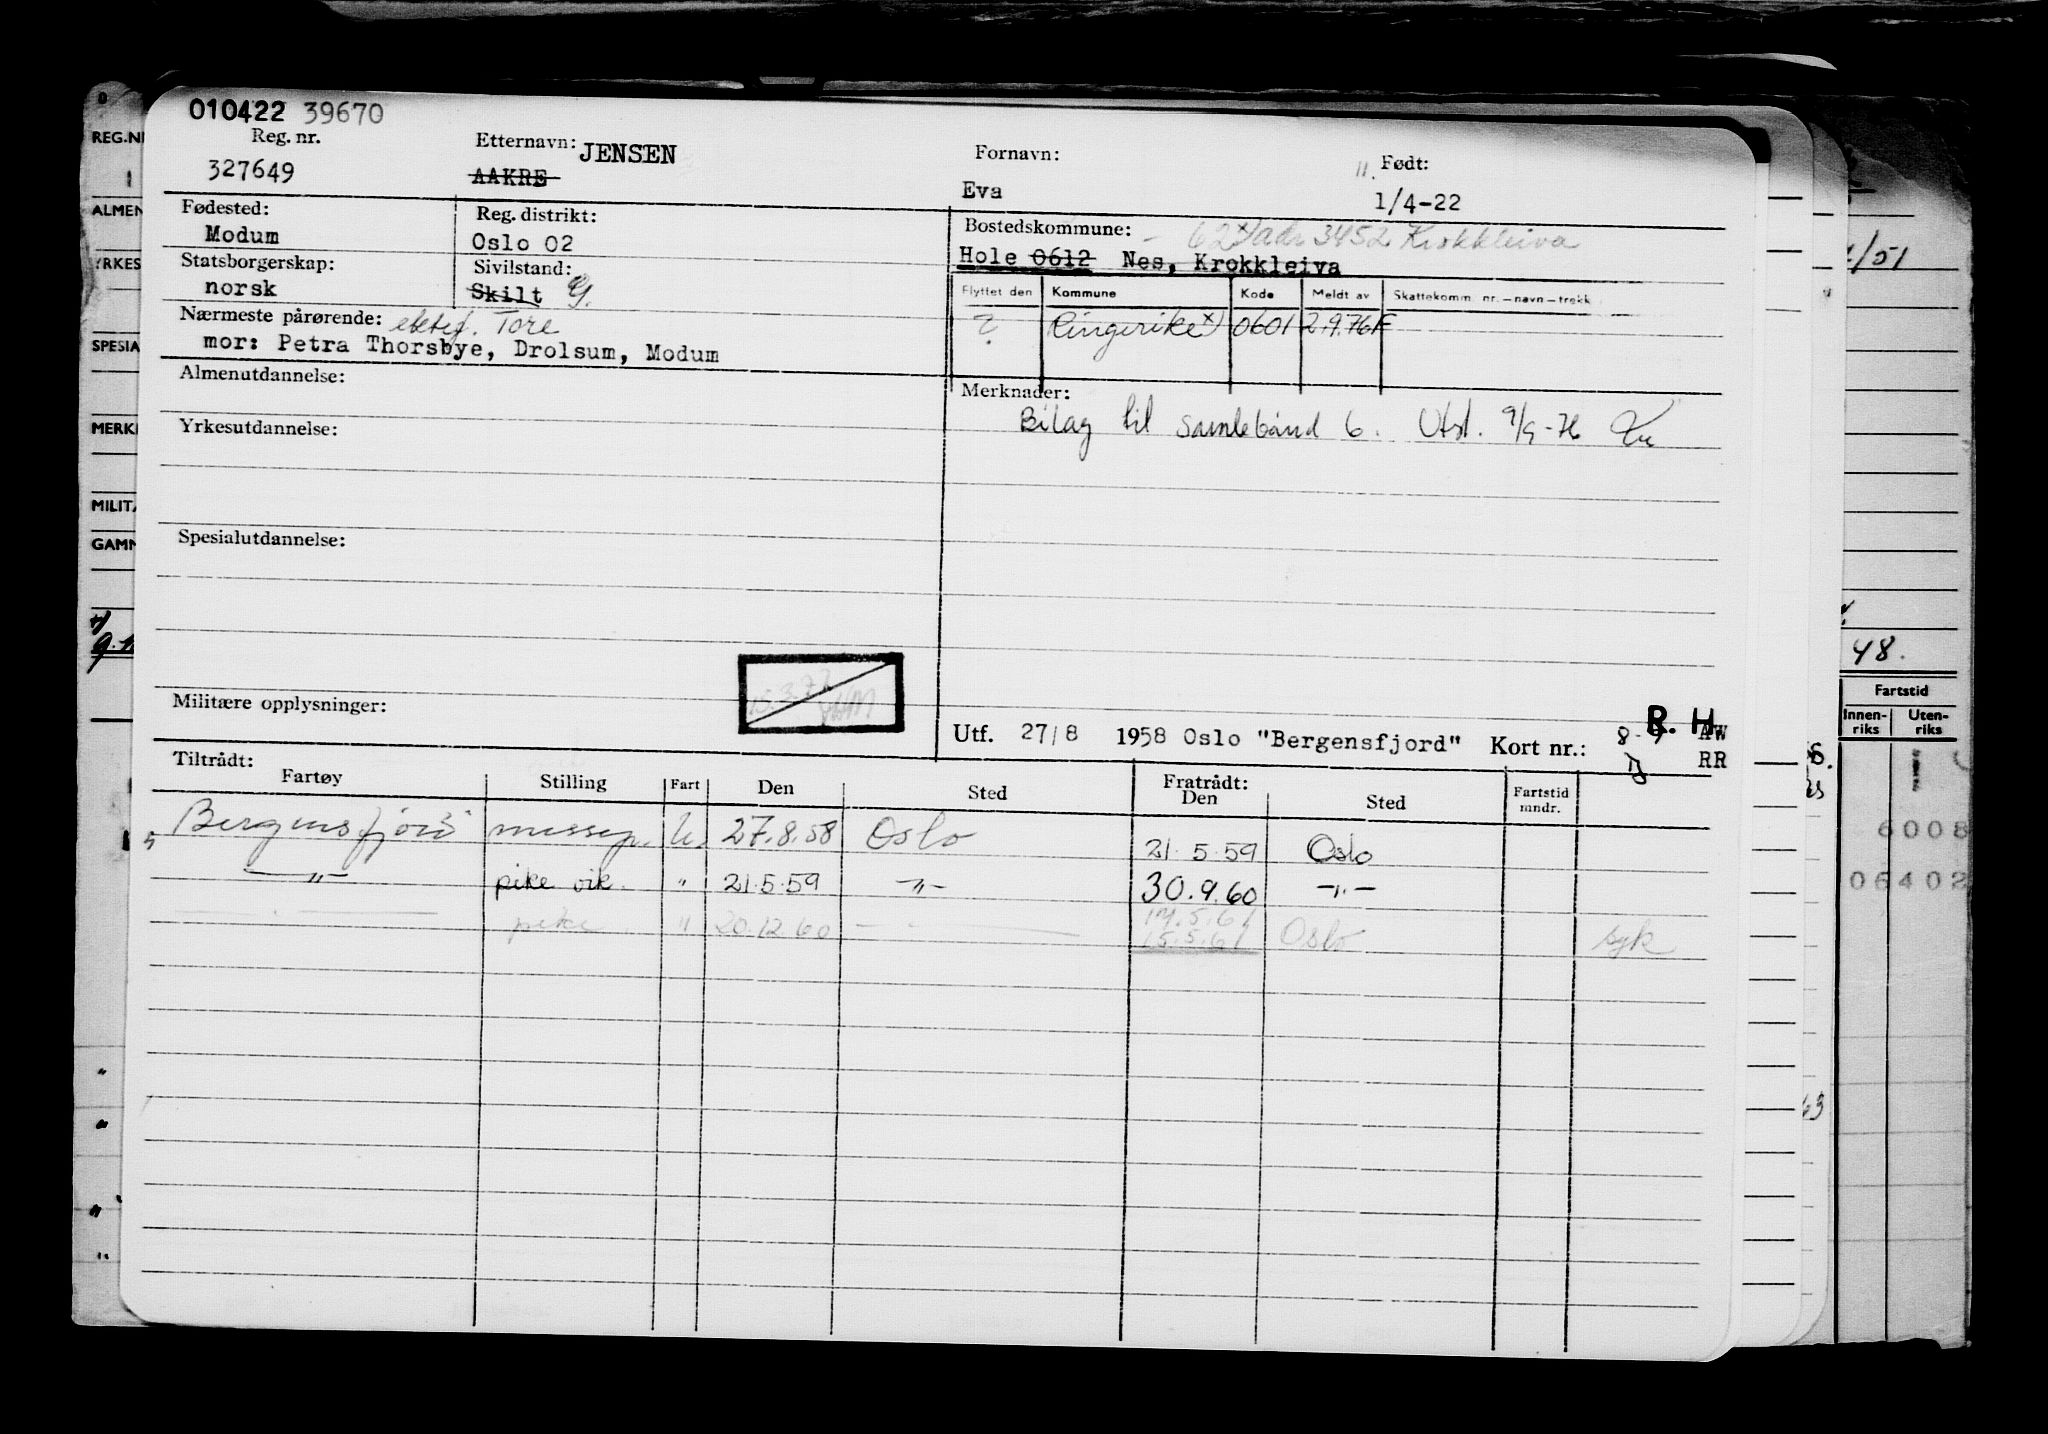 010422 39670
Reg. nr.
327649
Etternavn: JENSEN
AAKRE
Fornavn:
Eva
Født:
1/4-22
Fødested:
Modum
Reg. distrikt:
Oslo 02
Bostedskommune:
adr 3452 Krokkleiva
Hole 0612 Nes, Krokkleiva
Statsborgerskap:
norsk
Sivilstand:
Skilt g.
Flyttet den Kommune Kode Meldt av Skattekomm. nr.—navn—trekk
? Ringerike x) 0601 2.9.76 F
Nærmeste pårørende: ektef. Tore
mor: Petra Thorsbye, Drolsum, Modum
Almenutdannelse:
Merknader:
Bilag til samlebånd 6. Utst. 9/9-76
Yrkesutdannelse:
Spesialutdannelse:
Militære opplysninger:
R. H.
Utf. 27/8 1958 Oslo "Bergensfjord" Kort nr.: AW
RR
Tiltrådt:
Fartøy Stilling Fart Den Sted
Fratrådt:
Den Sted Fartstid mndr.
Bergensfjord messep. U. 27.8.58 Oslo 21.5.59 Oslo
—"— pike vik. " 21.5.59 —"— 30.9.60 —"—
pike " 20.12.60 17.5.61
15.5.61 Oslo syk
REG.N
ALMEN
YRKES
SPESIA
MERK
MILIT
GAMM
/51
48.
Fartstid
Innen-riks Uten-riks
6008
06402